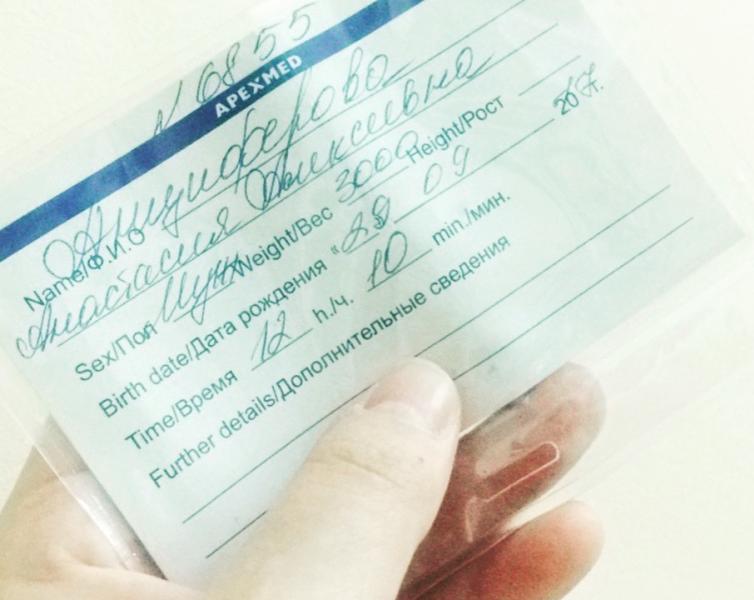 N 6855
APEXMED
Name/Ф.И.О Анциферова
Анастасия
Sex/Пол Муж Weight/Вес 3000 Height/Рост
Birth date/Дата рождения "29 09 20 г.
Time/Время 12 h./ч. 10 min./мин.
Further details/Дополнительные сведения